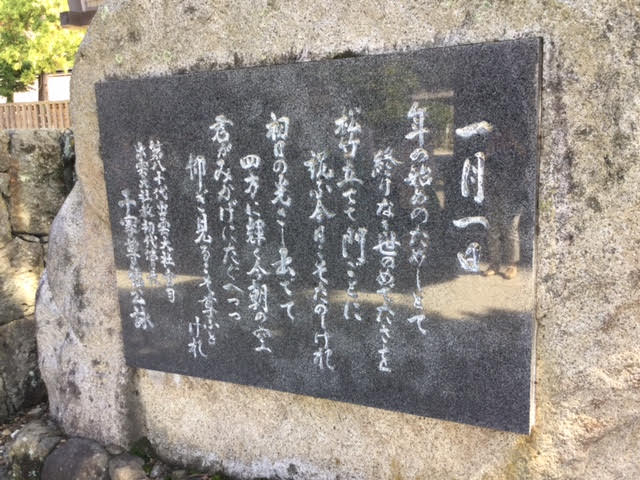 一月一日
年の始めのためしとて
終りなき世のめでたさを
松竹立てて門ごとに
祝ふ今日こそたのしけれ
初日の光さし出でて
四方に輝く今朝の空
君がみかげにたぐへつつ
仰ぎ見るこそ尊とけれ
第八十代出雲大社宮司
出雲大社教初代管長
千家尊福公詠